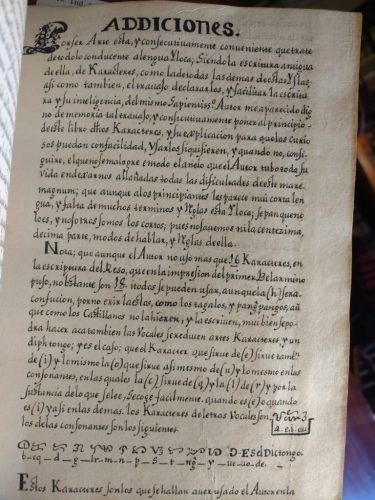 ADDICIONES.
Por ser Arte esta, y consecutivamente conveniente que trate
de todo lo conducente a lengua Yloca; Siendo la escritura antigua
de ella, de Karacteres, como la de todas las demas de estas Yslas
asi como tambien, el trauajo declararlos, y facilitar la escritu
ra y su ineligencia, del mismo Sapienissº Autor me a parecido dig
no de memoria tal trauajo; y consecutivamente poner al principio
de este libro dhos Karacteres, y su explicacion para que los curio
sos puedan con facilidad, Vsarlos si quisieren, y quando no, consi
guire, el que no se malogre en todo el anelo que el Autor tubo toda su
vida en dexarnos allañadas todas las dificultades de este mare
magnum; que aunque a los principiantes les parece mui corta len
gua, y falta de muchos terminos y Rglas esta Yloca; Se pan que no
lo es, y nosotros somos los cortos; pues no sauemos ni la centezima,
decima parte, modos de hablar, y Rglas de ella.
Nota; que aunque el Autor no uso mas que 16 Karacteres, en
la escriptura del Reso, que en la impresion del primer Belarmino
puso, no bstante son 18. i todos se pueden usar, aunque la (h) sera
confusion, por no exir la estos, como los tagalos, y panpangos, añ
que como los Castillanos no la hieren, y la escriuen, mui bien se po
dra hacer aca tambien las Vocales se reducen a tres Karacteres y un
diphtongo; y es el caso; que el Karacter que sirue de (e) sirue tambⁿ
de (i) y lo mismo la (o) que sirue asi mesmo de (u) y lo mesmo en las
consonantes, en las quales la (c) sirue de (q) y la (l) de (r) y por la
sustancia de lo que se lee, se coge facilmente, quando es (e) o quando
es (i) y asi en las demas. los Karacteres de letras Vocales son,
a. e.i. ou
los de las consonantes son los siguientes.
Esdidictongo.
b _ cq _ d _ g _ lr _ m _ n _ p _ s _ t _ ng _ y _ ue _ uo _ de.
Estos Karacteres son los que se hallan auer usado el Autor en la